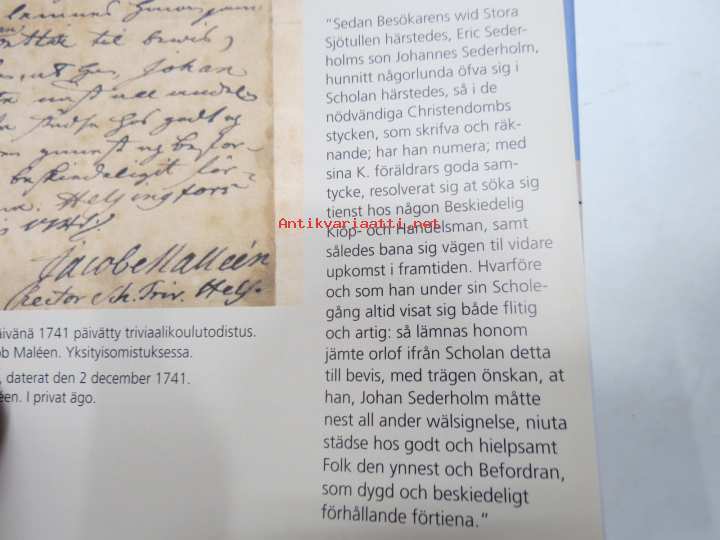 til bewis,
Johan
godt og
Helsingfors
Jacob Malleén
Rector Sch. Triv. Helsf.
äivänä 1741 päivätty triviaalikoulutodistus.
ob Maléen. Yksityisomistuksessa.
, daterat den 2 december 1741.
éen. I privat ägo.
"Sedan Besökarens wid Stora
Sjötullen härstedes, Eric Seder-
holms son Johannes Sederholm,
hunnitt någorlunda öfva sig i
Scholan härstedes, så i de
nödvändiga Christendombs
stycken, som skrifva och räk-
nande; har han numera; med
sina K. föräldrars goda sam-
tycke, resolverat sig at söka sig
tienst hos någon Beskiedelig
Kiöp- och Handelsman, samt
således bana sig vägen til vidare
upkomst i framtiden. Hvarföre
och som han under sin Schole-
gång altid visat sig både flitig
och artig: så lämnas honom
jämte orlof ifrån Scholan detta
till bevis, med trägen önskan, at
han, Johan Sederholm måtte
nest all ander wälsignelse, niuta
städse hos godt och hielpsamt
Folk den ynnest och Befordran,
som dygd och beskiedeligt
förhållande förtiena."
Antikvariaatti.net